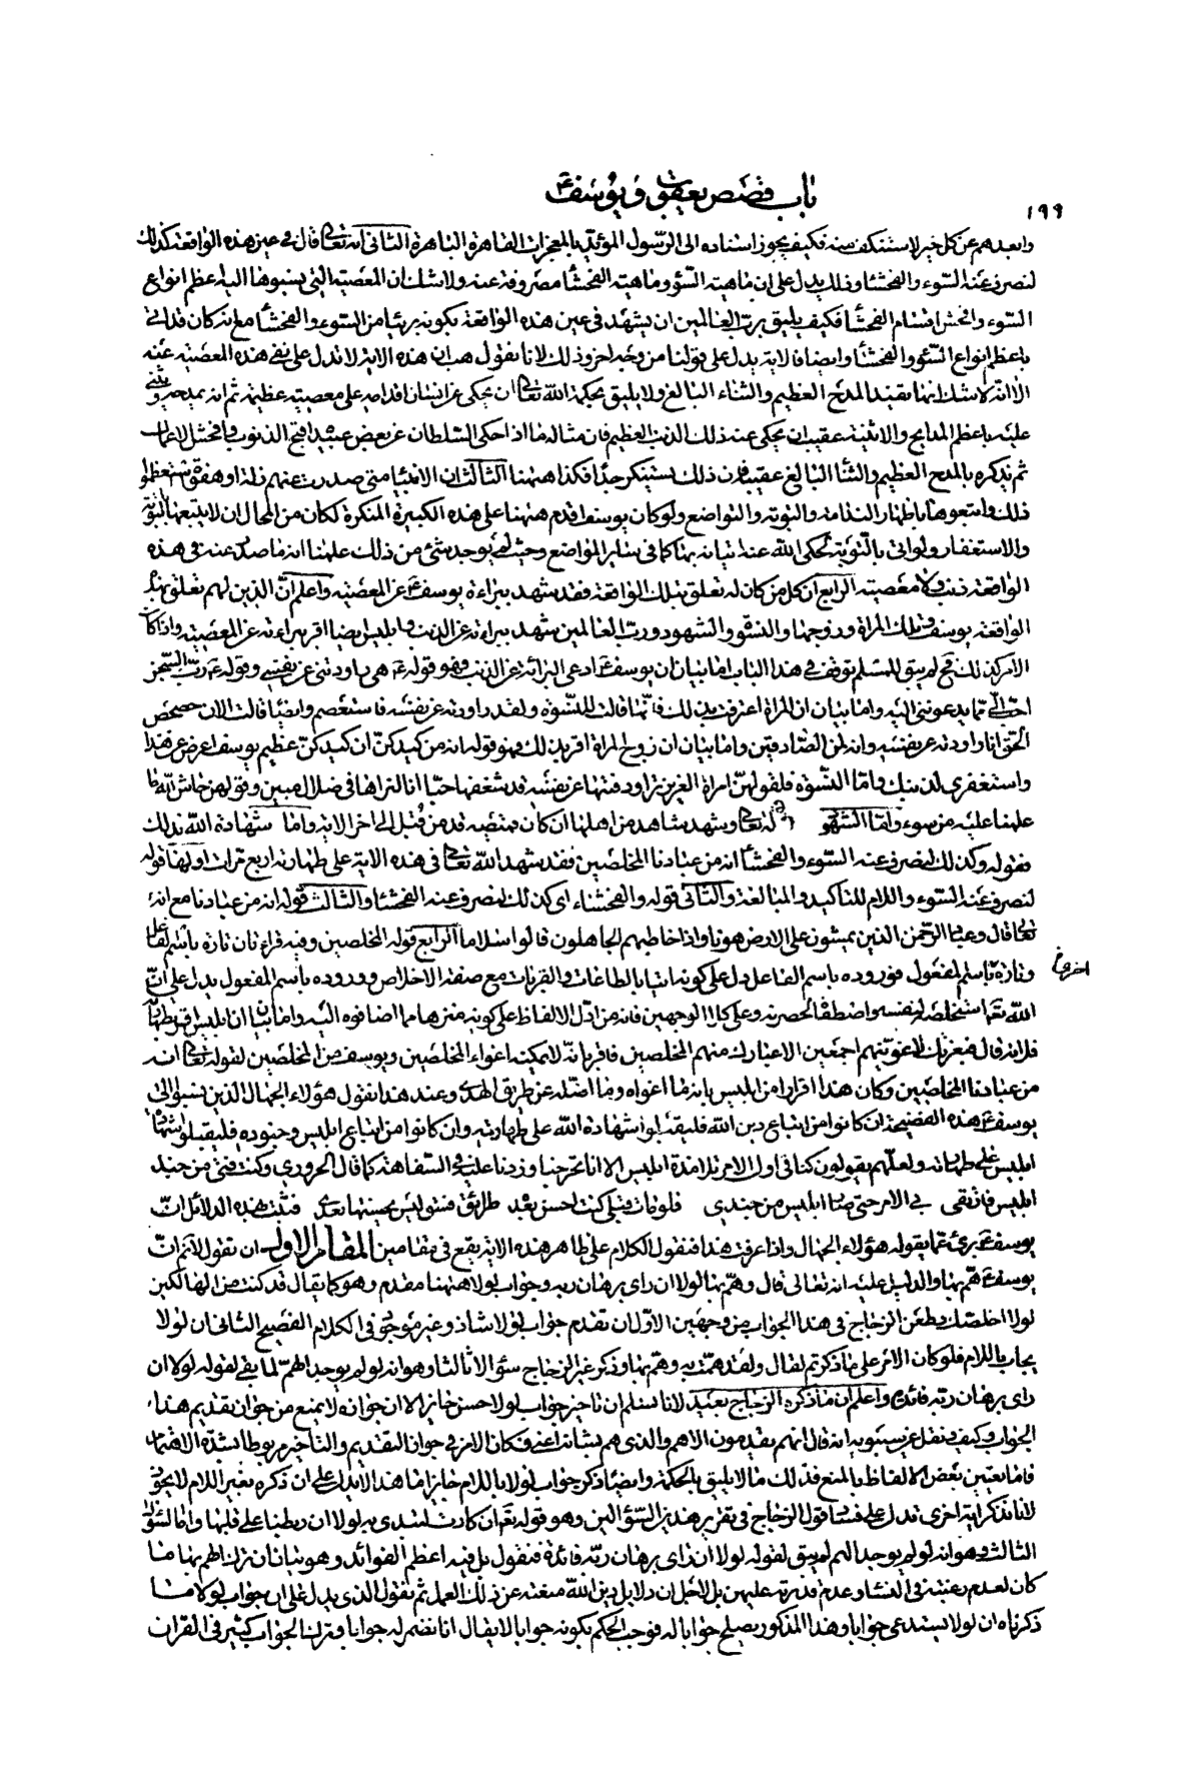 باب قصص يعقوب و يوسف ع
١٩٩
وابعدهم عن كل خير لاستنكف منه فكيف يجوز اسناده الى الرسول المؤيد بالمعجزات القاهرة الباهرة الثانى انه تعالى قال فى عين هذه الواقعة كذلك
لنصرف عنه السوء والفحشاء وذلك يدل على ان ماهية السوء وماهية الفحشاء مصروفة عنه ولا شك ان المعصية التى ينسبوها اليه اعظم انواع
السوء وافحش اقسام الفحشاء فكيف يليق برب العالمين ان يشهد فى عين هذه الواقعة بكونه بريئا من السوء والفحشاء مع انه كان قد اتى
باعظم انواع السوء والفحشاء وايضا فالاية يدل على قولنا من وجه اخر وذلك لانا نقول هب ان هذه الاية لا تدل على نفى هذه المعصية عنه
الا انه لا شك انها تفيد المدح العظيم والثناء البالغ ولا يليق بحكمة الله تعالى ان يحكى عن انسان اقدامه على معصية عظيمة ثم انه يمدحه ويثنى
عليه باعظم المدايح والاثنية عقيب ان يحكى عنه ذلك الذنب العظيم فان مثاله ما اذا حكى السلطان عن بعض عبيده اقبح الذنوب وافحش الاعمال
ثم يذكره بالمدح العظيم والثناء البالغ عقيبه فان ذلك يستنكر جدا فكذا ههنا الثالث ان الانبياء متى صدرت عنهم زلة او هفوة استعظموا
ذلك واتبعوها باظهار الندامة والتوبة والتواضع ولو كان يوسف اقدم ههنا على هذه الكبيرة المنكرة لكان من المحال ان لا يتبعها بالتوبة
والاستغفار ولو اتى بالتوبة لحكى الله عنه اتيانه بها كما فى ساير المواضع وحيث لم يوجد شئ من ذلك علمنا انه ما صدر عنه فى هذه
الواقعة ذنب ولا معصية الرابع ان كل من كان له تعلق بتلك الواقعة فقد شهد ببراءة يوسف ع عن المعصية واعلم ان الذين لهم تعلق بهذه
الواقعة يوسف وتلك المراة وزوجها والنسوة والشهود ورب العالمين شهد ببراءته عن الذنب وابليس ايضا اقر ببراءته عن المعصية واذا كان
الامر كذلك فح لم يبق للمسلم توقف فى هذا الباب اما بيان ان يوسف ع ادعى البراءة عن الذنب فهو قوله ع هى راودتنى عن نفسى وقوله ع رب السجن
احب الى مما يدعوننى اليه واما بيان ان المراة اعترفت بذلك فانها قالت للنسوة ولقد راودته عن نفسه فاستعصم وايضا قالت الان حصحص
الحق انا راودته عن نفسه وانه لمن الصادقين واما بيان ان زوج المراة اقر بذلك فهو قوله انه من كيدكن ان كيدكن عظيم يوسف اعرض عن هذا
واستغفرى لذنبك واما النسوة فلقولهن امراة العزيز تراود فتيها عن نفسه قد شغفها حبا انا لنراها فى ضلال مبين وقولهن حاش لله ما
علمنا عليه من سوء واما الشهود فقوله تعالى وشهد شاهد من اهلها ان كان قميصه قد من قبل الى اخر الاية واما شهادة الله بذلك
فقوله وكذلك لنصرف عنه السوء والفحشاء انه من عبادنا المخلصين فقد شهد الله تعالى فى هذه الاية على طهارته اربع مرات اولها قوله
لنصرف عنه السوء واللام للتاكيد والمبالغة والثانى قوله والفحشاء اى كذلك لنصرف عنه الفحشاء والثالث قوله انه من عبادنا مع انه
تعالى قال وعباد الرحمن الذين يمشون على الارض هونا واذا خاطبهم الجاهلون قالوا سلاما الرابع قوله المخلصين وفيه قراءتان تارة باسم الفاعل
وتارة باسم المفعول فوروده باسم الفاعل دل على كونه اتيا بالطاعات والقربات مع صفة الاخلاص ووروده باسم المفعول يدل على ان
الله تعالى استخلصه لنفسه واصطفاه لحضرته وعلى كلا الوجهين فانه من ادل الالفاظ على كونه منزها مما اضافوه اليه واما بيان ان ابليس اقر بطهارته
فلانه قال فبعزتك لاغوينهم اجمعين الا عبادك منهم المخلصين فاقر بانه لا يمكنه اغواء المخلصين ويوسف من المخلصين لقوله تعالى انه
من عبادنا المخلصين وكان هذا اقرارا من ابليس بانه ما اغواه وما اضله عن طريق الهدى وعند هذا نقول هؤلاء الجهال الذين نسبوا الى
يوسف ع هذه الفضيحة ان كانوا من اتباع دين الله فليقبلوا شهادة الله على طهارته وان كانوا من اتباع ابليس وجنوده فليقبلوا شهادة
ابليس على طهارته ولعلهم يقولون كنا فى اول الامر تلامذة ابليس الا انا تخرجنا وزدنا عليه فى السفاهة كما قال الحرورى وكنت فتى من جند
ابليس فارتقى بى الامر حتى صار ابليس من جندى فلو مات قبلى كنت احسن بعده طرائق فسق ليس يحسنها بعدى فثبت بهذه الدلائل ان
يوسف ع برئ عما يقوله هؤلاء الجهال واذا عرفت هذا فنقول الكلام على ظاهر هذه الاية يقع فى مقامين المقام الاول ان نقول لا نم ان
يوسف ع هم بها والدليل عليه انه تعالى قال وهم بها لولا ان راى برهان ربه وجواب لولا ههنا مقدم وهو كما يقال قد كنت من الهالكين
لولا اخلصتك وطعن الزجاج فى هذا الجواب من وجهين الاول ان تقدم جواب لولا شاذ وغير موجود فى الكلام الفصيح الثانى ان لولا
يجاب باللام فلو كان الامر على ما ذكرتم لقال ولقد همت به وهم بها وذكر غير الزجاج سؤالا ثالثا وهو انه لو لم يوجد الهم لما بقى لقوله لولا ان
راى برهان ربه فائدة واعلم ان ما ذكره الزجاج بعيد لانا نسلم ان تاخير جواب لولا حسن جايز الا ان جوازه لا يمنع من جواز تقديم هذا
الجواب وكيف ونقل عن سيبويه انه قال انهم يقدمون الاهم والذى هم بشانه اعنى فكان الامر فى جواز التقديم والتاخير مربوطا بشدة الاهتمام
فاما تعيين بعض الالفاظ بالمنع فذلك مما لا يليق بالحكمة وايضا ذكر جواب لولا باللام جايز اما هذا لا يدل على ان ذكره بغير اللام لا يجوز
لانا نذكر اية اخرى تدل على فساد قول الزجاج فى تقرير هذين السؤالين وهو قوله تعالى ان كادت لتبدى به لولا ان ربطنا على قلبها واما السؤال
الثالث وهو انه لو لم يوجد الهم لم يبق لقوله لولا ان راى برهان ربه فائدة فنقول بل فيه اعظم الفوائد وهو بيان ان ترك الهم بها ما
كان لعدم رغبته فى النساء وعدم قدرته عليهن بل لاجل ان دلايل دين الله منعته عن ذلك العمل ثم نقول الذى يدل على ان جواب لولا ما
ذكرناه ان لولا يستدعى جوابا وهذا المذكور يصلح جوابا له فوجب الحكم بكونه جوابا لا يقال انا نضمر له جوابا وترك الجواب كثير فى القران